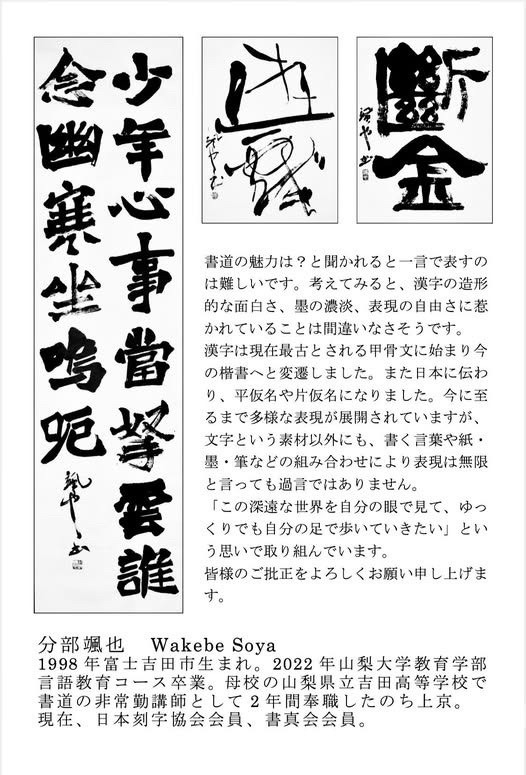 少年心事當拏雲誰
念幽寒坐嗚呃
颯也書
斷金
颯也書
書道の魅力は？と聞かれると一言で表すの
は難しいです。考えてみると、漢字の造形
的な面白さ、墨の濃淡、表現の自由さに惹
かれていることは間違いなさそうです。
漢字は現在最古とされる甲骨文に始まり今
の楷書へと変遷しました。また日本に伝わ
り、平仮名や片仮名になりました。今に至
るまで多様な表現が展開されていますが、
文字という素材以外にも、書く言葉や紙・
墨・筆などの組み合わせにより表現は無限
と言っても過言ではありません。
「この深遠な世界を自分の眼で見て、ゆっ
くりでも自分の足で歩いていきたい」とい
う思いで取り組んでいます。
皆様のご批正をよろしくお願い申し上げま
す。
分部颯也　Wakebe Soya
1998 年富士吉田市生まれ。2022 年山梨大学教育学部
言語教育コース卒業。母校の山梨県立吉田高等学校で
書道の非常勤講師として 2 年間奉職したのち上京。
現在、日本刻字協会会員、書真会会員。